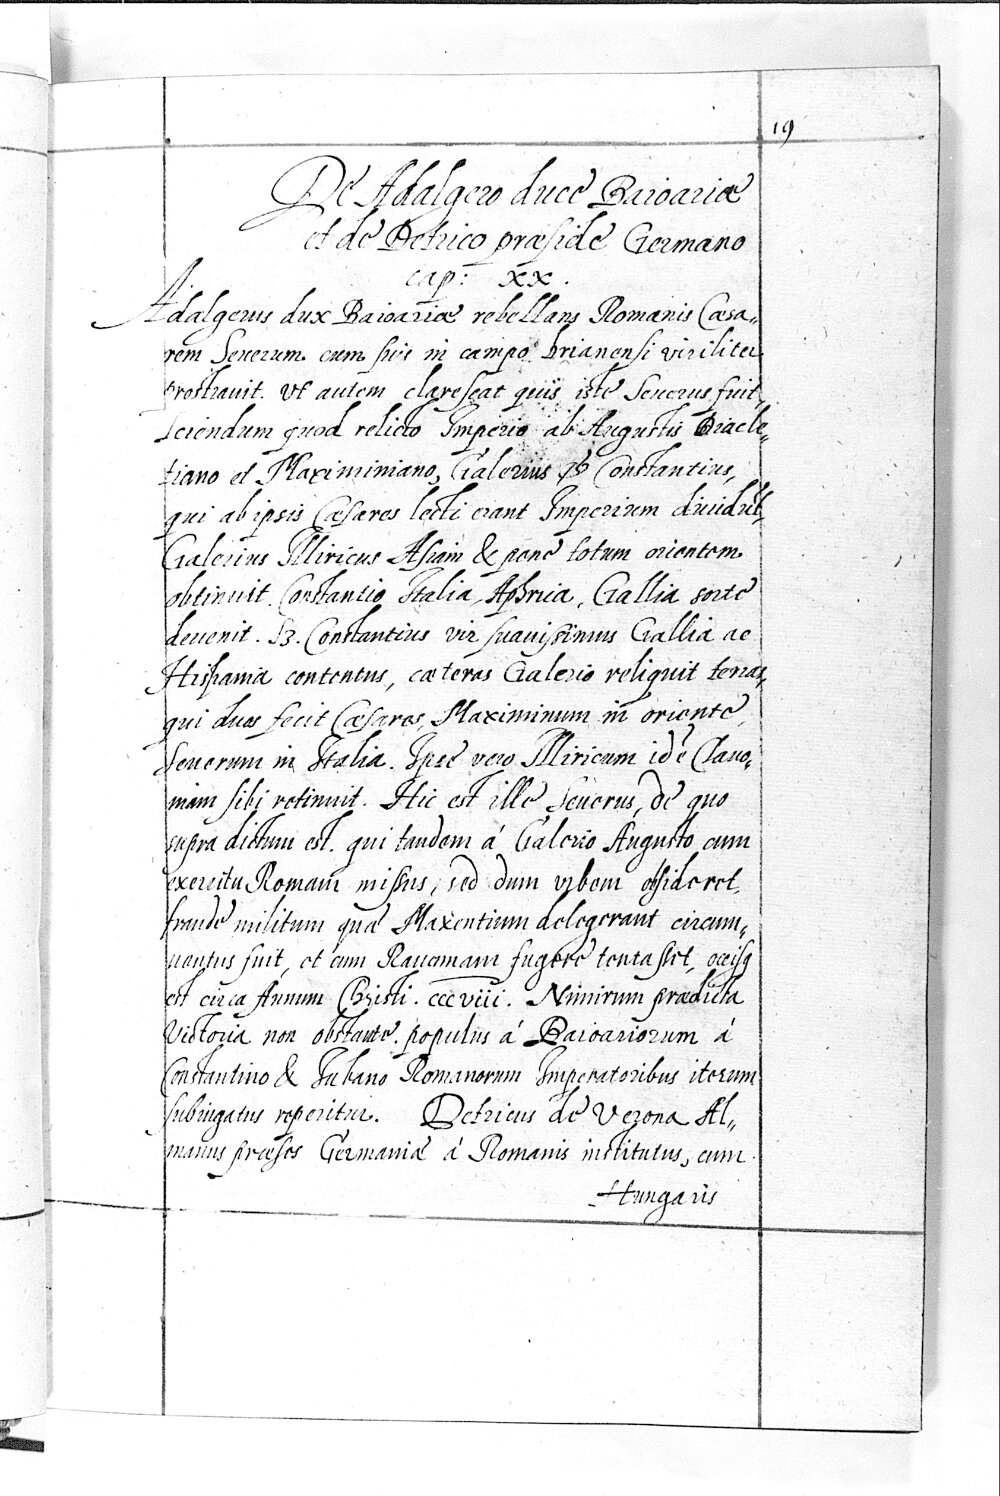 19
De Adalgero duce Baioariæ
et de Detrico præside Germano
cap: XX.
Adalgerus dux Baioariæ rebellans Romanis Cæsa„
rem Seuerum cum suis in campo brianensi viriliter
prostrauit. Ut autem clarescat quis iste Seuerus fuit,
sciendum quod relicto Imperio ab Augustis Diacle„
tiano et Maximiniano, Galerius & Constantius,
qui ab ipsis Cæsares lecti erant Imperium diuidūt,
Galerius Illiricus Asiam & pene totum orientem
obtinuit. Constantio Italia, Aphrica, Gallia sorte
deuenit. Sz. Constantius vir suauissimus Gallia ac
Hispania contentus, cæteras Galerio reliquit terras,
qui duos fecit Cæsares, Maximinum in oriente,
Seuerum in Italia. Ipse vero Illiricum idē Clauo„
niam sibi retinuit. Hic est ille Seuerus, de quo
supra dictum est. qui tandem á Galerio Augusto cum
exercitu Romam missus, sed dum vrbem obsideret,
fraude militum quæ Maxentium delegerant circum„
uentus fuit, et cum Rauennam fugere tentasset, occisq
est circa Annum Christi. cccviii. Nimirum prædicta
Victoria non obstante. populus á Baioariorum á
Constantino & Iubano Romanorum Imperatoribus iterum
subiugatus reperitur. Detricus de Verona Al„
manus præses Germaniæ á Romanis institutus, cum
Hungaris